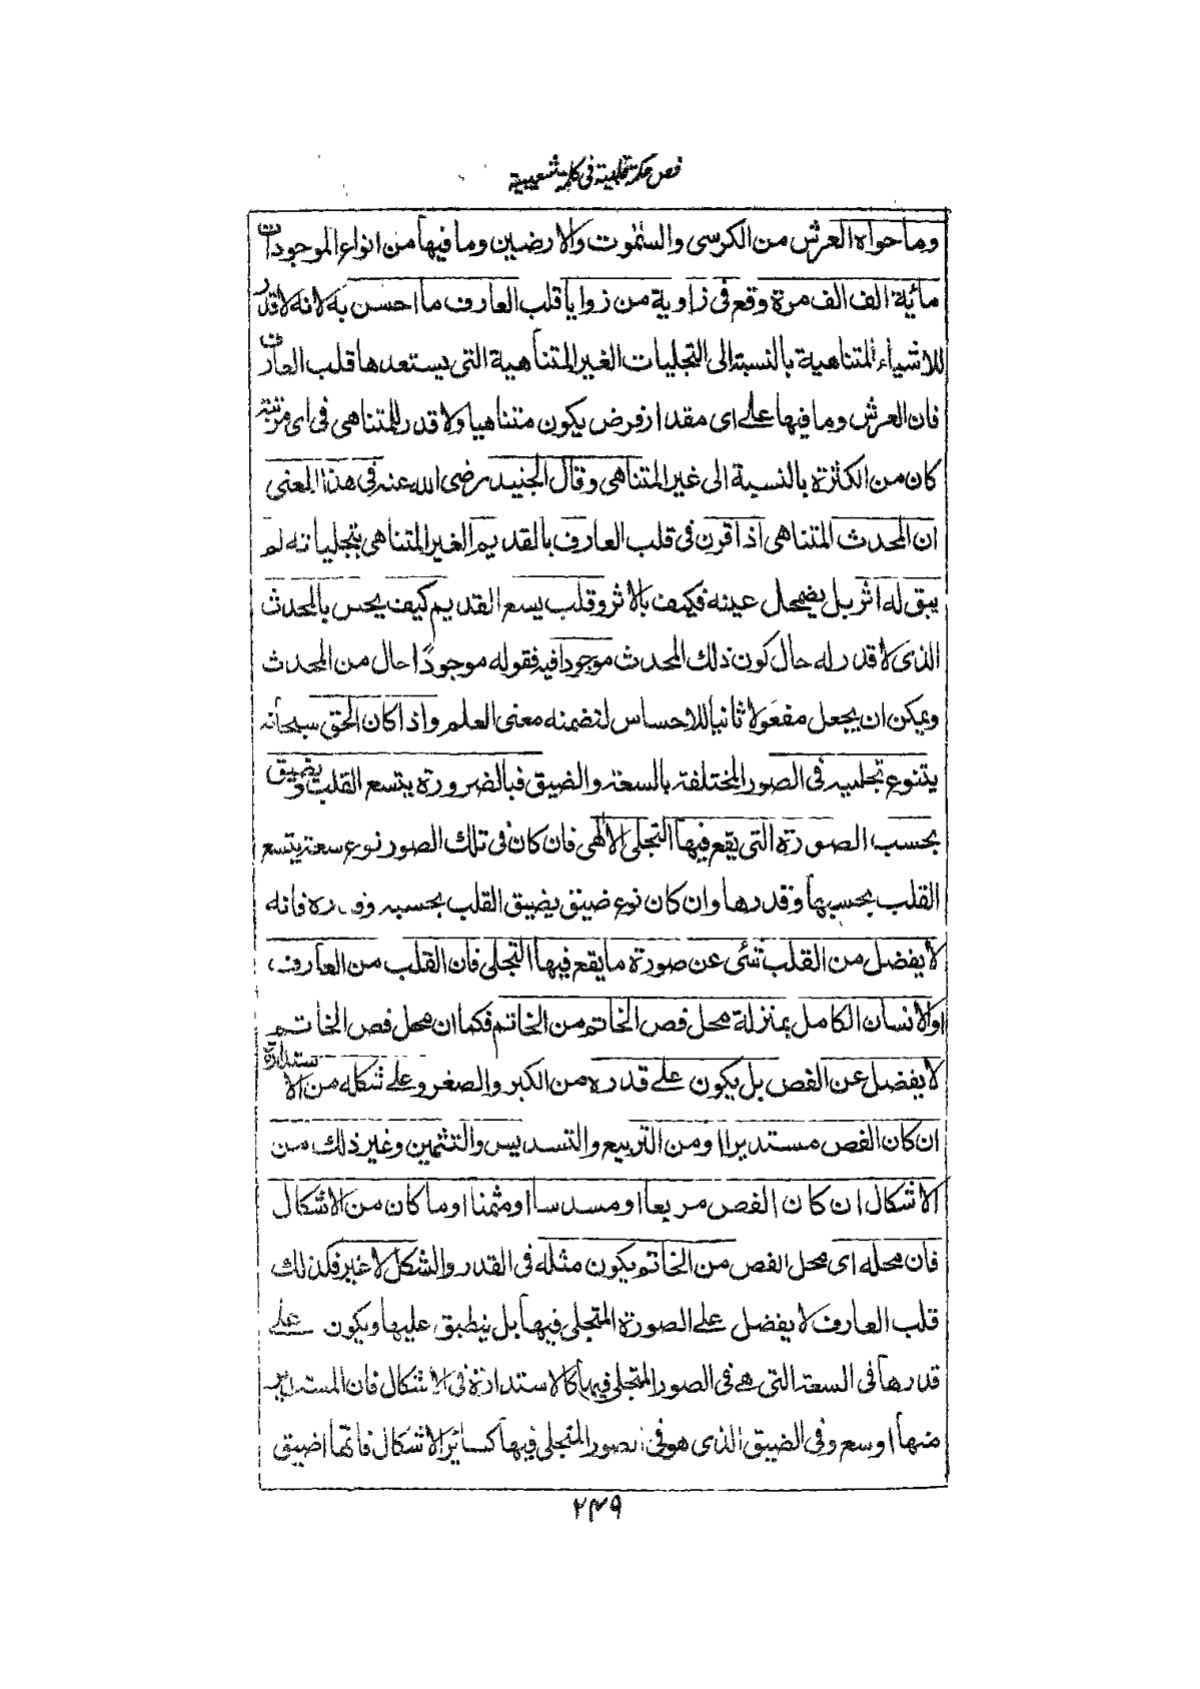 فص حكمة قلبية فى كلمة شعيبية
وما حواه العرش من الكرسى والسموت والارضين وما فيها من انواع الموجودات
مائية الف الف مرة وقع فى زاوية من زوايا قلب العارف ما احسن به لانه لا قدر
للاشياء المتناهية بالنسبة الى التجليات الغير المتناهية التى يستعدها قلب العارف
فان العرش وما فيها على اى مقدار فرض يكون متناهيا ولا قدر للمتناهى فى اى مرتبة
كان من الكثرة بالنسبة الى غير المتناهى وقال الجنيد رضى الله عنه فى هذا المعنى
ان المحدث المتناهى اذا قرن فى قلب العارف بالقديم الغير المتناهى بتجلياته لم
يبق له اثر بل يضمحل عينه فكيف بالاثر وقلب يسع القديم كيف يحس بالمحدث
الذى لا قدر له حال كون ذلك المحدث موجودا فيه فقوله موجودًا حال من المحدث
ويمكن ان يجعل مفعولا ثانيا للاحساس لتضمنه معنى العلم واذا كان الحق سبحانه
يتنوع تجليه فى الصور المختلفة بالسعة والضيق فبالضرورة يتسع القلب ويضيق
بحسب الصورة التى يقع فيها التجلى الالهى فان كان فى تلك الصور نوع سعة يتسع
القلب بحسبها وقدرها وان كان نوع ضيق يضيق القلب بحسبه وقدره فانه
لا يفضل من القلب شئ عن صورة ما يقع فيها التجلى فان القلب من العارف
او الانسان الكامل بمنزلة محل فص الخاتم من الخاتم فكما ان محل فص الخاتم
لا يفضل عن الفص بل يكون على قدره من الكبر والصغر وعلى شكله من الاستدارة
ان كان الفص مستديرا او من التربيع والتسديس والتثمين وغير ذلك من
الاشكال ان كان الفص مربعا او مسدسا او مثمنا او ما كان من الاشكال
فان محله اى محل الفص من الخاتم يكون مثله فى القدر والشكل لا غير فكذلك
قلب العارف لا يفضل على الصورة المتجلى فيها بل ينطبق عليها ويكون على
قدرها فى السعة التى هى فى الصور المتجلى فيها كالاستدارة فى الاشكال فان المستدير
منها اوسع وفى الضيق الذى هو فى الصور المتجلى فيها كسائر الاشكال فانها اضيق
٢٣٩